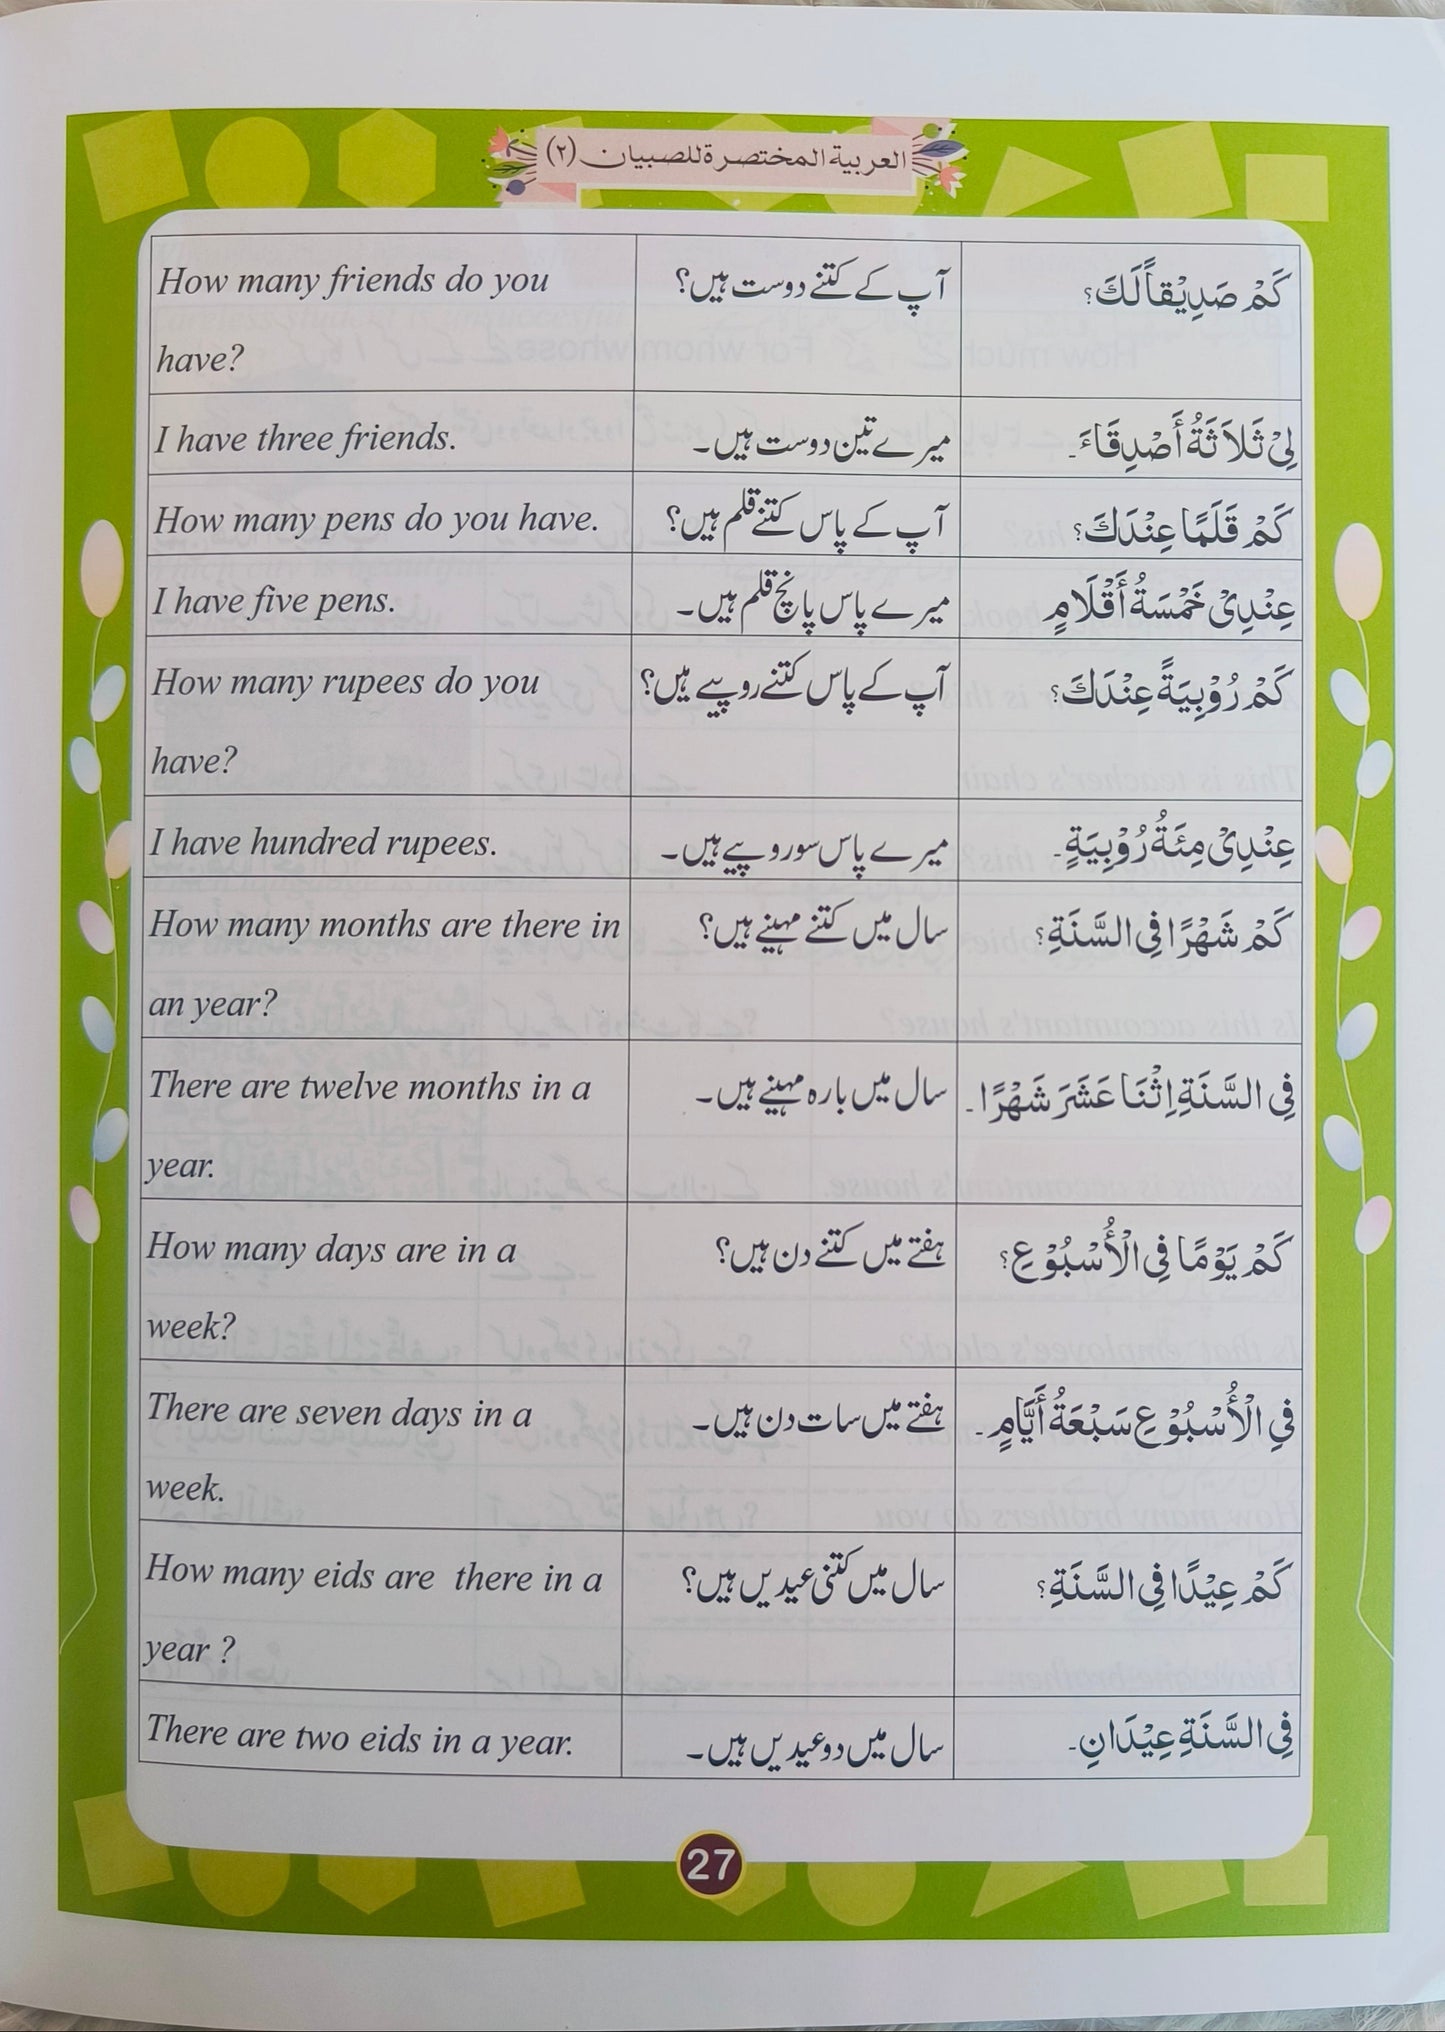 العربية المختصرة للصبيان (٢)
How many friends do you
have?
آپ کے کتنے دوست ہیں؟
كَمْ صَدِيْقاً لَكَ؟
I have three friends.
میرے تین دوست ہیں۔
لِیْ ثَلاَثَةُ أَصْدِقَاءَ۔
How many pens do you have.
آپ کے پاس کتنے قلم ہیں؟
كَمْ قَلَمًا عِنْدَكَ؟
I have five pens.
میرے پاس پانچ قلم ہیں۔
عِنْدِیْ خَمْسَةُ أَقْلَامٍ
How many rupees do you
have?
آپ کے پاس کتنے روپیے ہیں؟
كَمْ رُوْبِيَةً عِنْدَكَ؟
I have hundred rupees.
میرے پاس سو روپیے ہیں۔
عِنْدِیْ مِئَةُ رُوْبِيَةٍ۔
How many months are there in
an year?
سال میں کتنے مہینے ہیں؟
كَمْ شَهْرًا فِی السَّنَةِ؟
There are twelve months in a
year.
سال میں بارہ مہینے ہیں۔
فِی السَّنَةِ اِثْنَا عَشَرَ شَهْرًا۔
How many days are in a
week?
ہفتے میں کتنے دن ہیں؟
كَمْ يَوْمًا فِی الْأُسْبُوْعِ؟
There are seven days in a
week.
ہفتے میں سات دن ہیں۔
فِي الْأُسْبُوْعِ سَبْعَةُ أَيَّامٍ۔
How many eids are there in a
year ?
سال میں کتنی عیدیں ہیں؟
كَمْ عِيْدًا فِی السَّنَةِ؟
There are two eids in a year.
سال میں دو عیدیں ہیں۔
فِی السَّنَةِ عِيْدَانِ۔
27